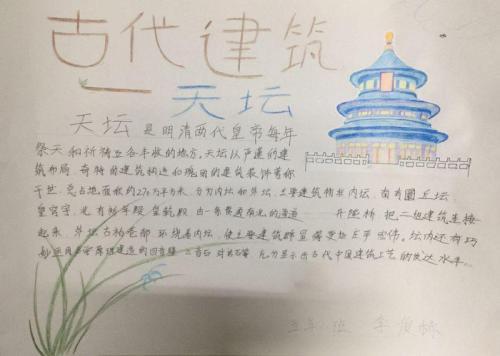 古代建筑
天坛
天坛是明清两代皇帝每年
祭天和祈祷五谷丰收的地方。天坛以严谨的建
筑布局、奇特的建筑构造和瑰丽的建筑装饰著称
于世。总占地面积约270万平方米,分为内坛和外坛,主要建筑物在内坛,南有圜丘坛
皇穹宇,北有祈年殿 皇乾殿 由一条贯通南北的 丹陛桥 把二组建筑连接
起来,外坛古柏苍郁 环绕着内坛,使主要建筑群显得更加庄严宏伟。坛内还有巧
妙运用声学原理建造的回音壁 三音石 对话石等 充分显示出古代中国建筑工艺的发达水平
五年 班 李俊